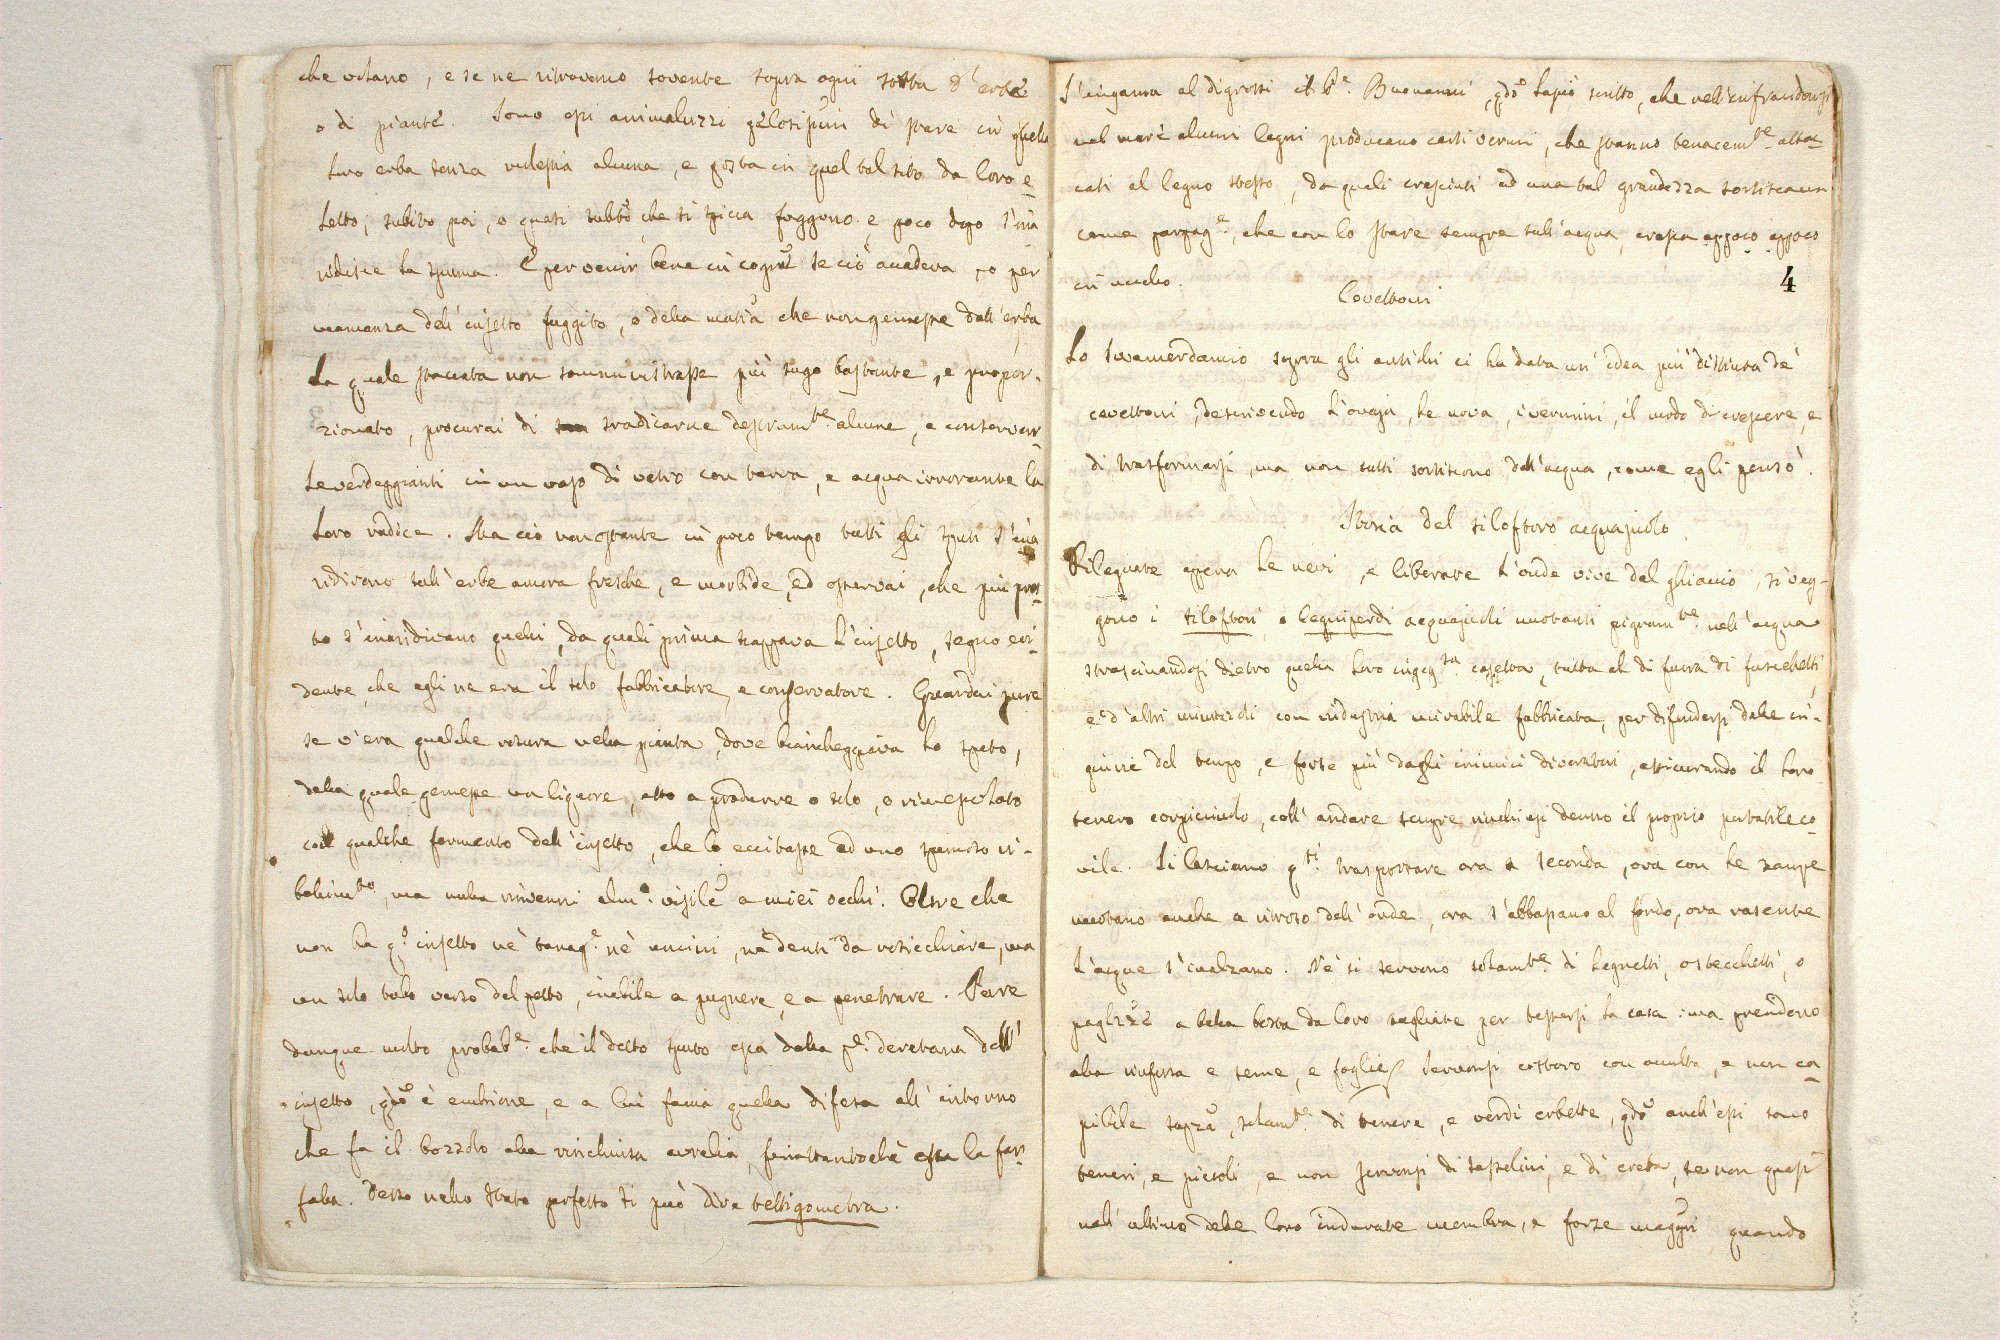 che volano, e se ne ritrovano sovente sopra ogni sorta d' erbe
o di piante. Sono essi animaluzzi gelosissimi di stare in quella
loro erba senza molestia alcuna, e posta in quel tal sito da loro e-
letto; subito poi, o quasi subito che si spicca fuggono e poco dopo s'ina
ridisce la spuma. E per venir bene in cogne se ciò accadeva, o per
mancanza dell' insetto fuggito, o della materia che non gemesse dall' erba
la quale staccata non somministrasse più sugo bastante, e propor-
zionato, procurai di sradicarne destramte alcune, e conservar-
le verdeggianti in un vaso di vetro con terra, e acqua irrorante la
loro radice. Ma ciò non ostante in poco tempo tutti gli sputi s'ina
ridirono sull' erbe ancora fresche, e morbide, ed osservai, che più pres-
to s'inaridivano quelli, da quali prima scappava l'insetto, segno evi-
dente, che egli ne era il solo fabbricatore, e conservatore. Guardai pure
se v'era qualche rotura nella pianta, dove biancheggiava lo sputo,
dalla quale gemesse un liquore, atto a produrre o solo, o rimescolato
con qualche fermento dell' insetto, che lo eccitasse ad uno spumoso ri-
bollimto, ma nulla rinvenni almo visile a miei occhi. Oltre che
non ha qo insetto nè tanage nè uncini, nè denti da rosicchiare, ma
un solo tubo verso del petto, inabile a pugnere, e a penetrare. Pare
dunque molto probabe che il detto sputo esca dalla pe deretana dell'
insetto, qdo è embrione, e a lui faccia quella difesa all' intorno
che fa il bozzolo alla rinchiusa aurelia, finattantochè esca la far-
falla. Desso nello stato perfetto si può dire vettigometra.
S'inganna al digrosso il Pe Buonanni, qdo lasciò scritto, che nell'infracidarsi
nel mare alcuni legni producano certi vermi, che stanno tenacemte attac-
cati al legno stesso, da quali cresciuti ad una tal grandezza sortisca un
come parpage, che con lo stare sempre sull' acqua cresca appoco appoco
in uccello.
4
Cevettoni
Lo Swamerdamio sopra gli antichi ci ha data un' idea più distinta de'
cevettoni, descrivendo l'ovaja, le uova, i vermini, il modo di crescere, e
di trasformarsi, ma non tutti sortiscono dall' acqua, come egli pensò.
Storia del siloftoro acquajuolo.
Dileguate appena le nevi, e liberate l'onde vive dal ghiaccio, si veg-
gono i siloftori, o legniperdi acquajuoli nuotanti pigramte nell' acqua
strascinandosi dietro quella loro ingegsa casetta, tutta al di fuora di fuscelletti
e d'altri minuzzoli con industria mirabile fabbricata, per difendersi dalle in-
giurie del tempo, e forse più dagli inimici divoratori, assicurando il loro
tenero corpicciuolo, coll' andare sempre rinchiusi dentro il proprio portatile co-
vile. Si lasciano qsti trasportare ora a seconda, ora con le zampe
nuotano anche a ritroso dell' onde, ora s'abbassano al fondo, ora rasente
l'acque s'inalzano. Nè si servono solamte di legnetti, o stecchetti, o
pagliuze a bella posta da loro tagliate per tessersi la casa: ma prendono
alla rinfusa e seme, e foglie, servonsi costoro con occulta, e non ca-
pibile sapza, solamte di tenere, e verdi erbette, qdo anch' essi sono
teneri, e piccoli, e non servonsi di sassolini, e di creta, se non quasi
nell' ultimo delle loro indurate membra, e forze maggri quando